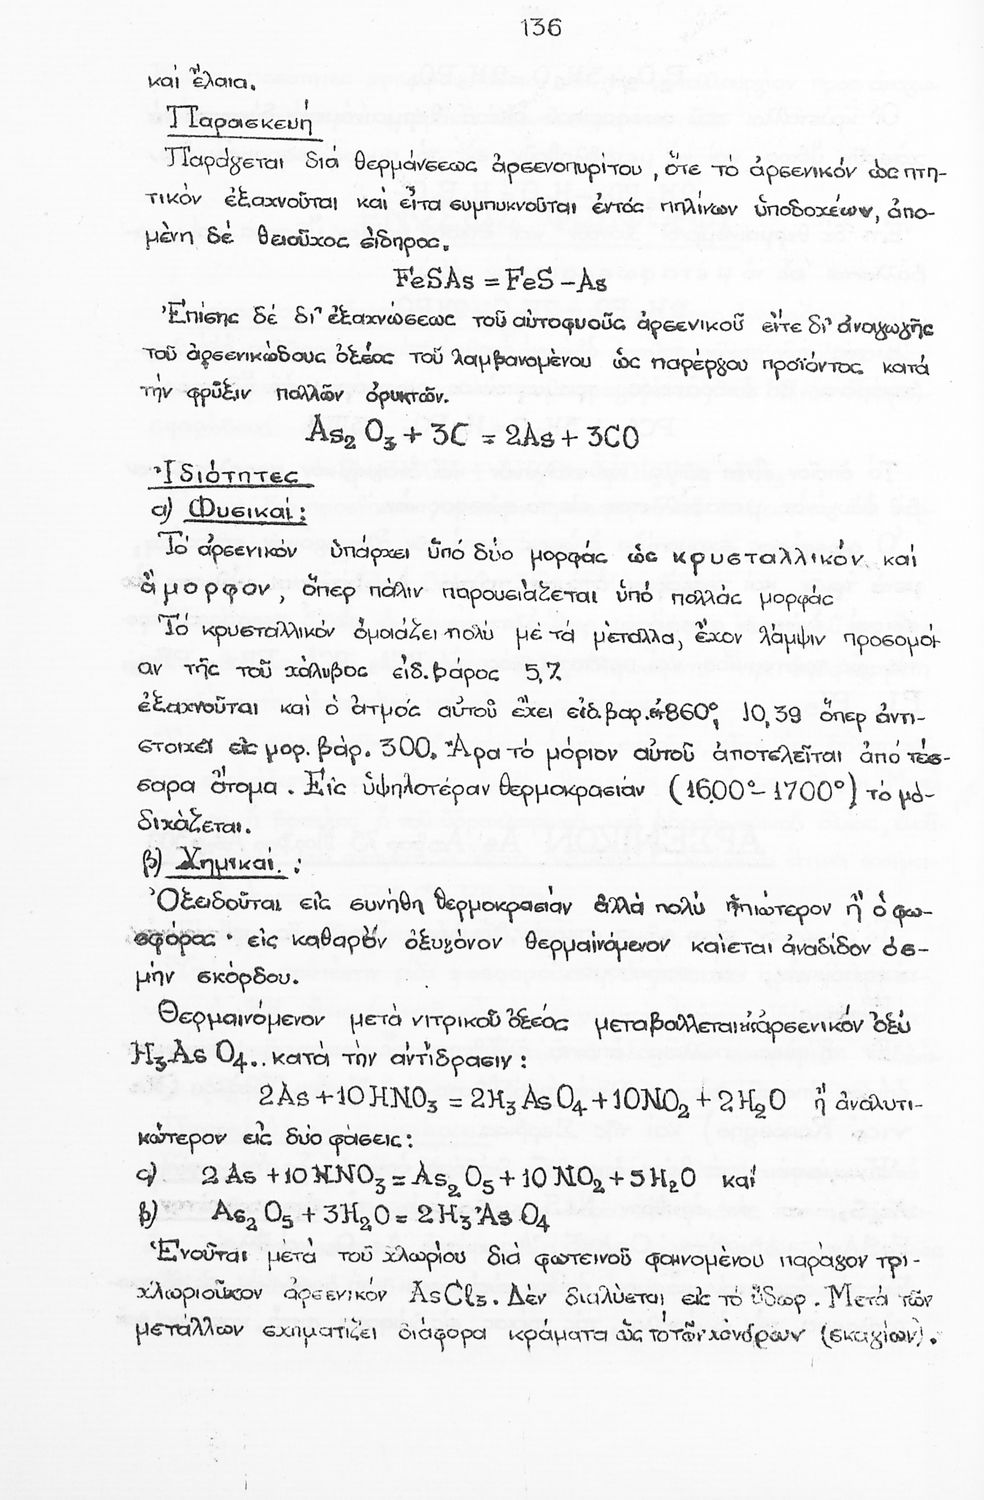 136
καί ἔλαια.
Παρασκευή
Παράγεται διά θερμάνσεως ἀρσενοπυρίτου, ὅτε τό ἀρσενικόν ὡς πτη-
τικόν ἐξαχνοῦται καί εἶτα συμπυκνοῦται ἐντός πηλίνων ὑποδοχέων, ἀπο-
μένη δέ θειοῦχος σίδηρος.
FeSAs = FeS - As
Ἐπίσης δέ δι' ἐξαχνώσεως τοῦ αὐτοφυοῦς ἀρσενικοῦ εἴτε δι' ἀναγωγῆς
τοῦ ἀρσενικώδους ὀξέος τοῦ λαμβανομένου ὡς παρέργου προϊόντος κατά
τήν φρῦξιν πολλῶν ὀρυκτῶν.
As₂O₃ + 3C = 2As + 3CO
Ἰδιότητες
α) Φυσικαί:
Τό ἀρσενικόν ὑπάρχει ὑπό δύο μορφάς ὡς κρυσταλλικόν καί
ἄμορφον, ὅπερ πάλιν παρουσιάζεται ὑπό πολλάς μορφάς
Τό κρυσταλλικόν ὁμοιάζει πολύ μέ τά μέταλλα, ἔχον λάμψιν προσομοί
αν τῆς τοῦ χάλυβος εἰδ. βάρος 5,7.
ἐξαχνοῦται καί ὁ ἀτμός αὐτοῦ ἔχει εἰδ. βαρ. εἰς 860°, 10,39 ὅπερ ἀντι-
στοιχεῖ εἰς μορ. βάρ. 300. Ἄρα τό μόριον αὐτοῦ ἀποτελεῖται ἀπό τέσ-
σαρα ἄτομα. Εἰς ὑψηλοτέραν θερμοκρασίαν (1600°-1700°) τό μό-
διχάζεται.
β) Χημικαί :
Ὀξειδοῦται εἰς συνήθη θερμοκρασίαν ἀλλά πολύ ἠπιώτερον ἤ ὁ φω-
σφόρος· εἰς καθαρόν ὀξυγόνον θερμαινόμενον καίεται ἀναδίδον ὀσ-
μήν σκόρδου.
Θερμαινόμενον μετά νιτρικοῦ ὀξέος μεταβάλλεται εἰς ἀρσενικόν ὀξύ
H₃AsO₄.. κατά τήν ἀντίδρασιν:
2As + 10HNO₃ = 2H₃AsO₄ + 10NO₂ + 2H₂O ἤ ἀναλυτι-
κώτερον εἰς δύο φάσεις:
α) 2As + 10HNO₃ = As₂O₅ + 10NO₂ + 5H₂O καί
β) As₂O₅ + 3H₂O = 2H₃AsO₄
Ἑνοῦται μετά τοῦ χλωρίου διά φωτεινοῦ φαινομένου παράγον τρι-
χλωριοῦχον ἀρσενικόν AsCl₃. Δέν διαλύεται εἰς τό ὕδωρ. Μετά τῶν
μετάλλων σχηματίζει διάφορα κράματα ὡς τό τῶν χόνδρων (σκαγίων).